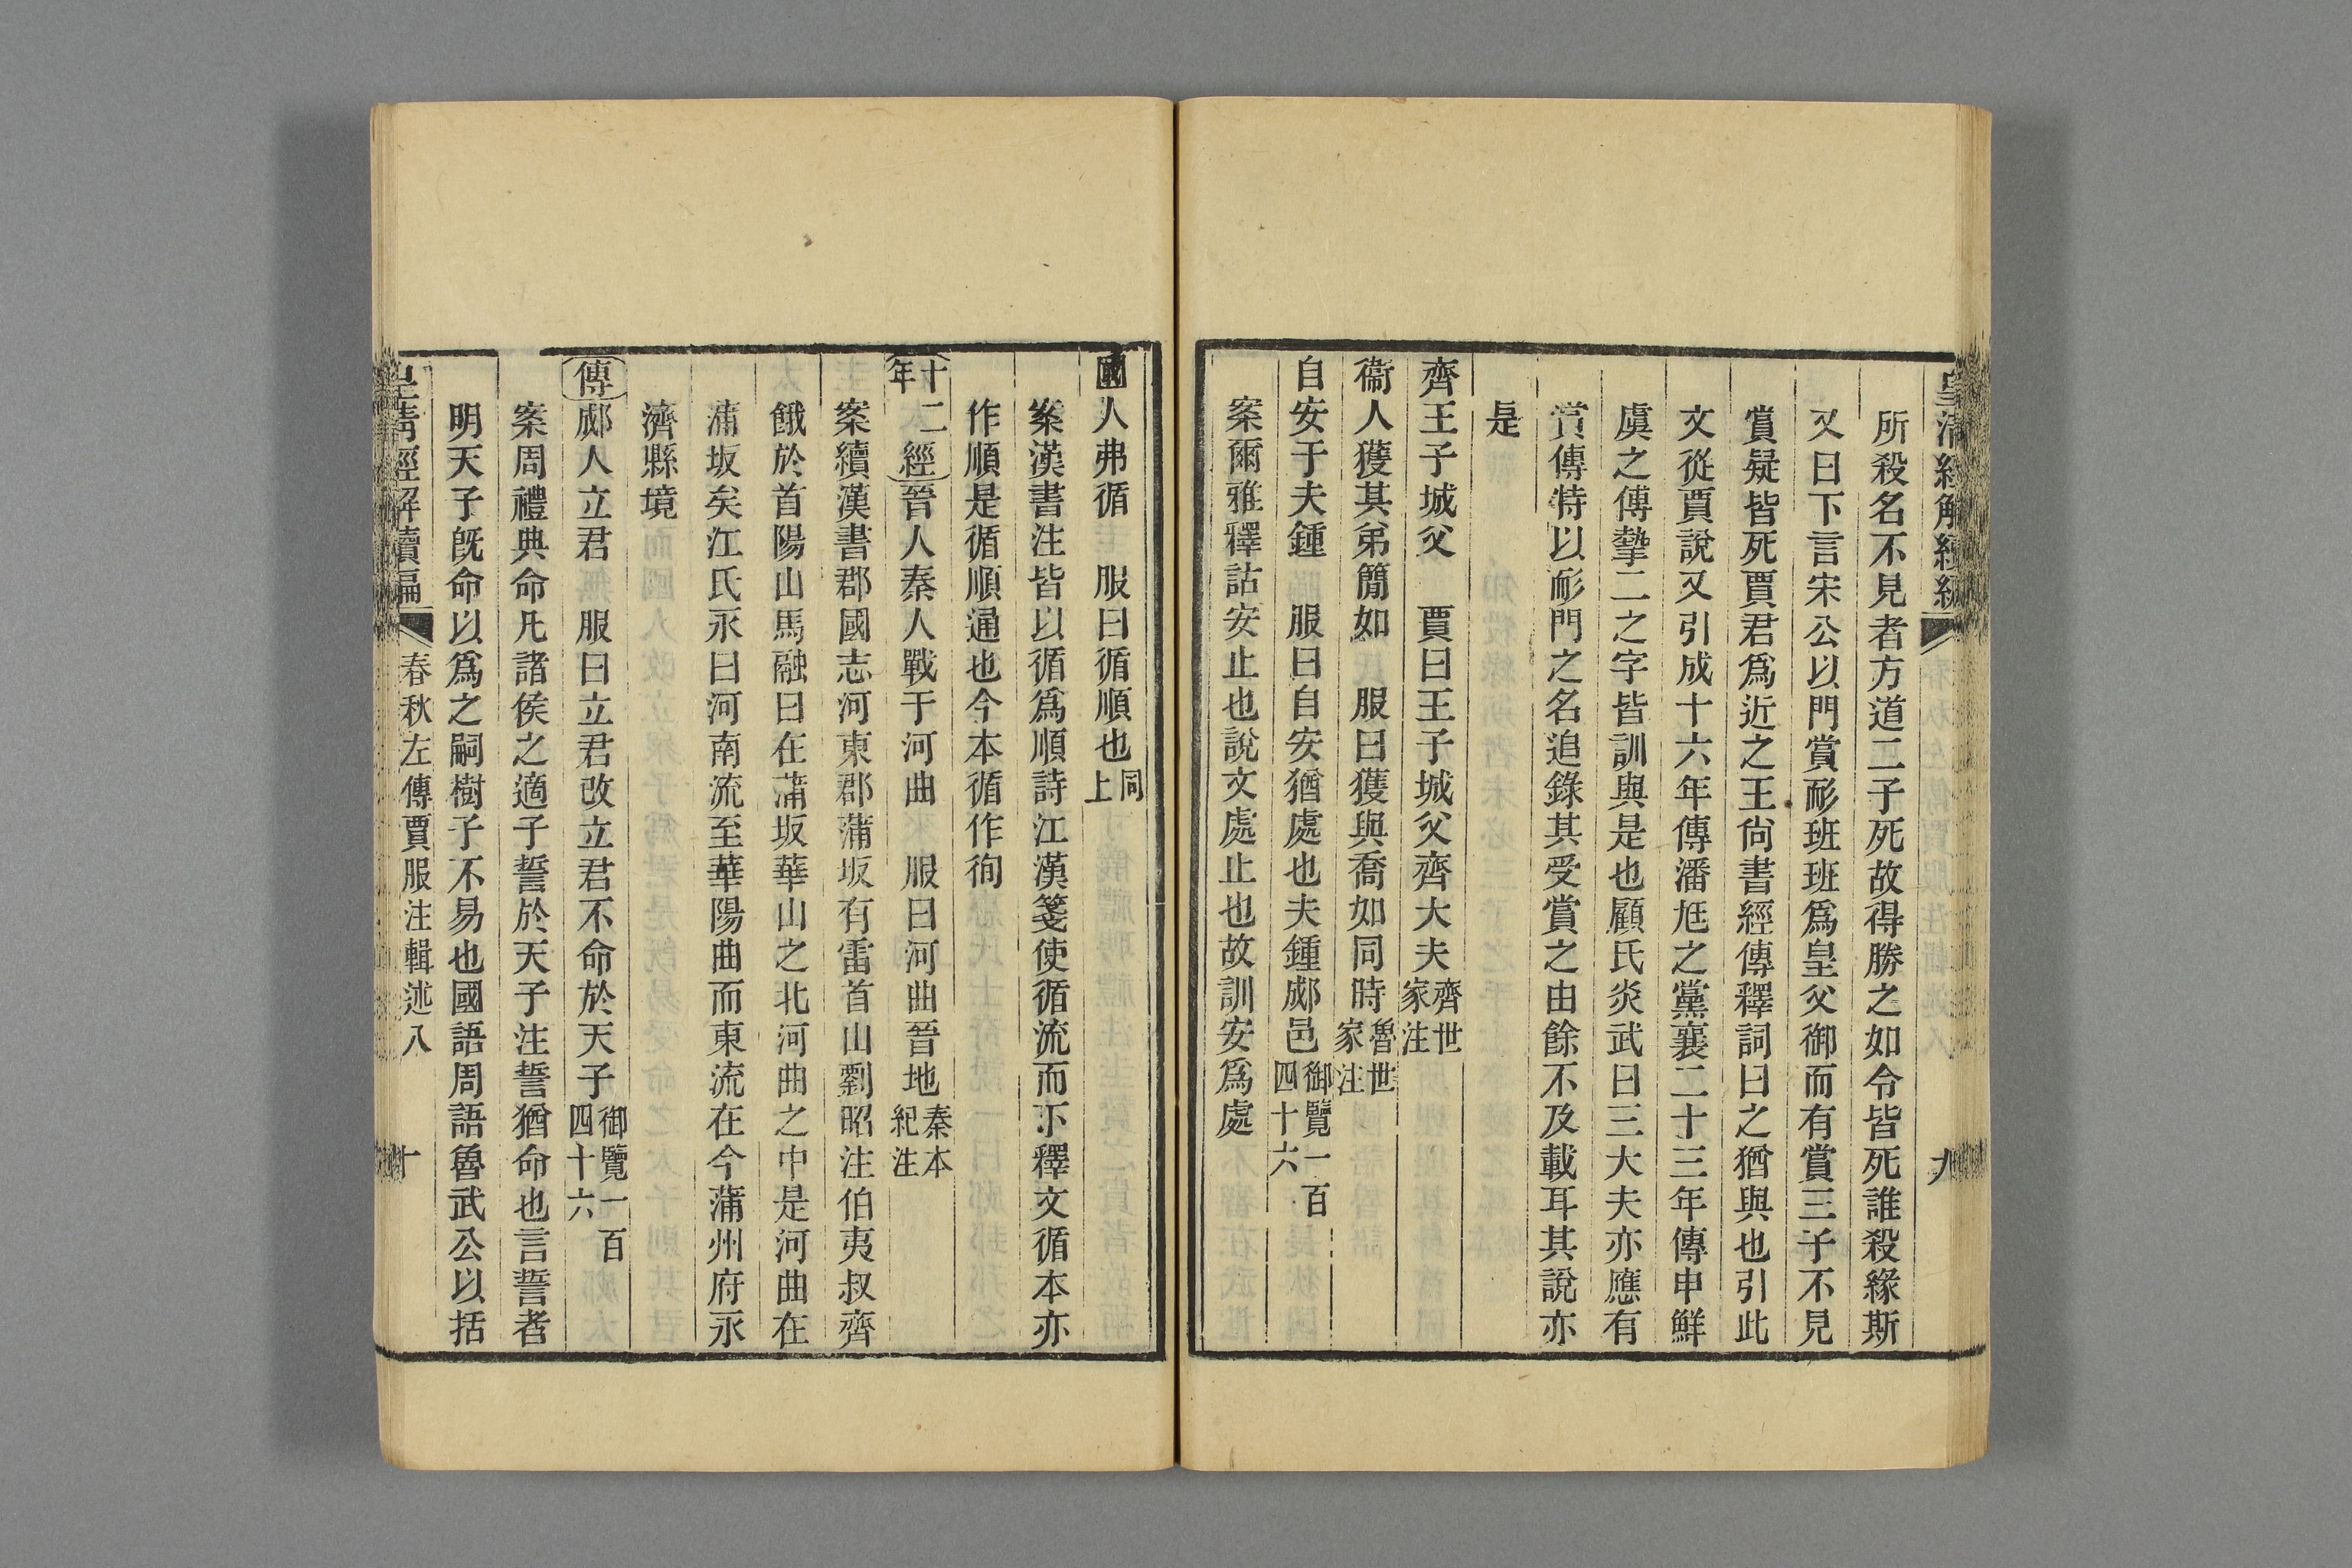 所殺名不見者方道二子死故得勝之如令皆死誰殺緣斯
又曰下言宋公以門賞耏班班爲皇父御而有賞三子不見
賞疑皆死賈君爲近之王尙書經傳釋詞曰之猶與也引此
文從賈說又引成十六年傳潘尫之黨襄二十三年傳申鮮
虞之傳摯二之字皆訓與是也顧氏炎武曰三大夫亦應有
賞傳特以耏門之名追錄其受賞之由餘不及載耳其說亦
是
齊王子城父　賈曰王子城父齊大夫齊世家注
衞人獲其弟簡如　服曰獲與喬如同時魯世家注
自安于夫鍾　服曰自安猶處也夫鍾郕邑御覽一百四十六
案爾雅釋詁安止也說文處止也故訓安爲處
國人弗循　服曰循順也同上
案漢書注皆以循爲順詩江漢箋使循流而下釋文循本亦
作順是循順通也今本循作徇
十二年經晉人秦人戰于河曲　服曰河曲晉地秦本紀注
案續漢書郡國志河東郡蒲坂有雷首山劉昭注伯夷叔齊
餓於首陽山馬融曰在蒲坂華山之北河曲之中是河曲在
蒲坂矣江氏永曰河南流至華陽曲而東流在今蒲州府永
濟縣境
傳郕人立君　服曰立君改立君不命於天子御覽一百四十六
案周禮典命凡諸侯之適子誓於天子注誓猶命也言誓者
明天子旣命以爲之嗣樹子不易也國語周語魯武公以括
皇淸經解續編　春秋左傳賈服注輯述八　十